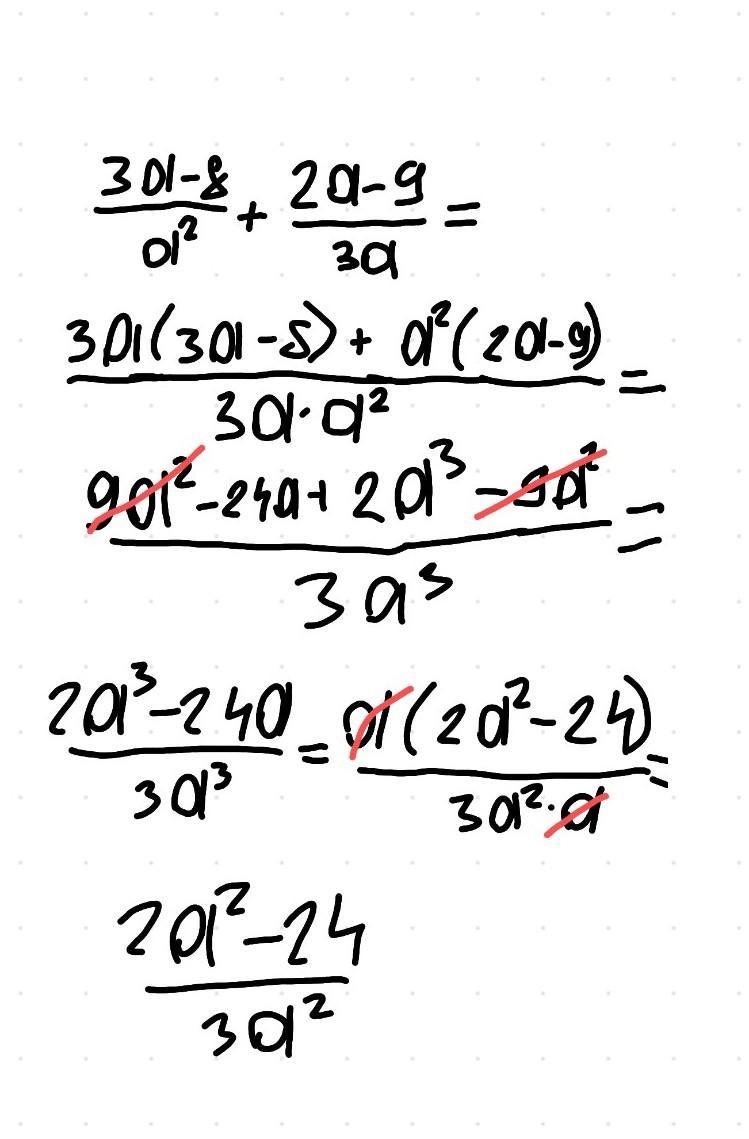 (3a-8)/a² + (2a-9)/3a =
(3a(3a-8) + a²(2a-9))/(3a·a²) =
(9a²-24a+2a³-9a²)/(3a³) =
(2a³-24a)/(3a³) = (a(2a²-24))/(3a²·a) =
(2a²-24)/(3a²)